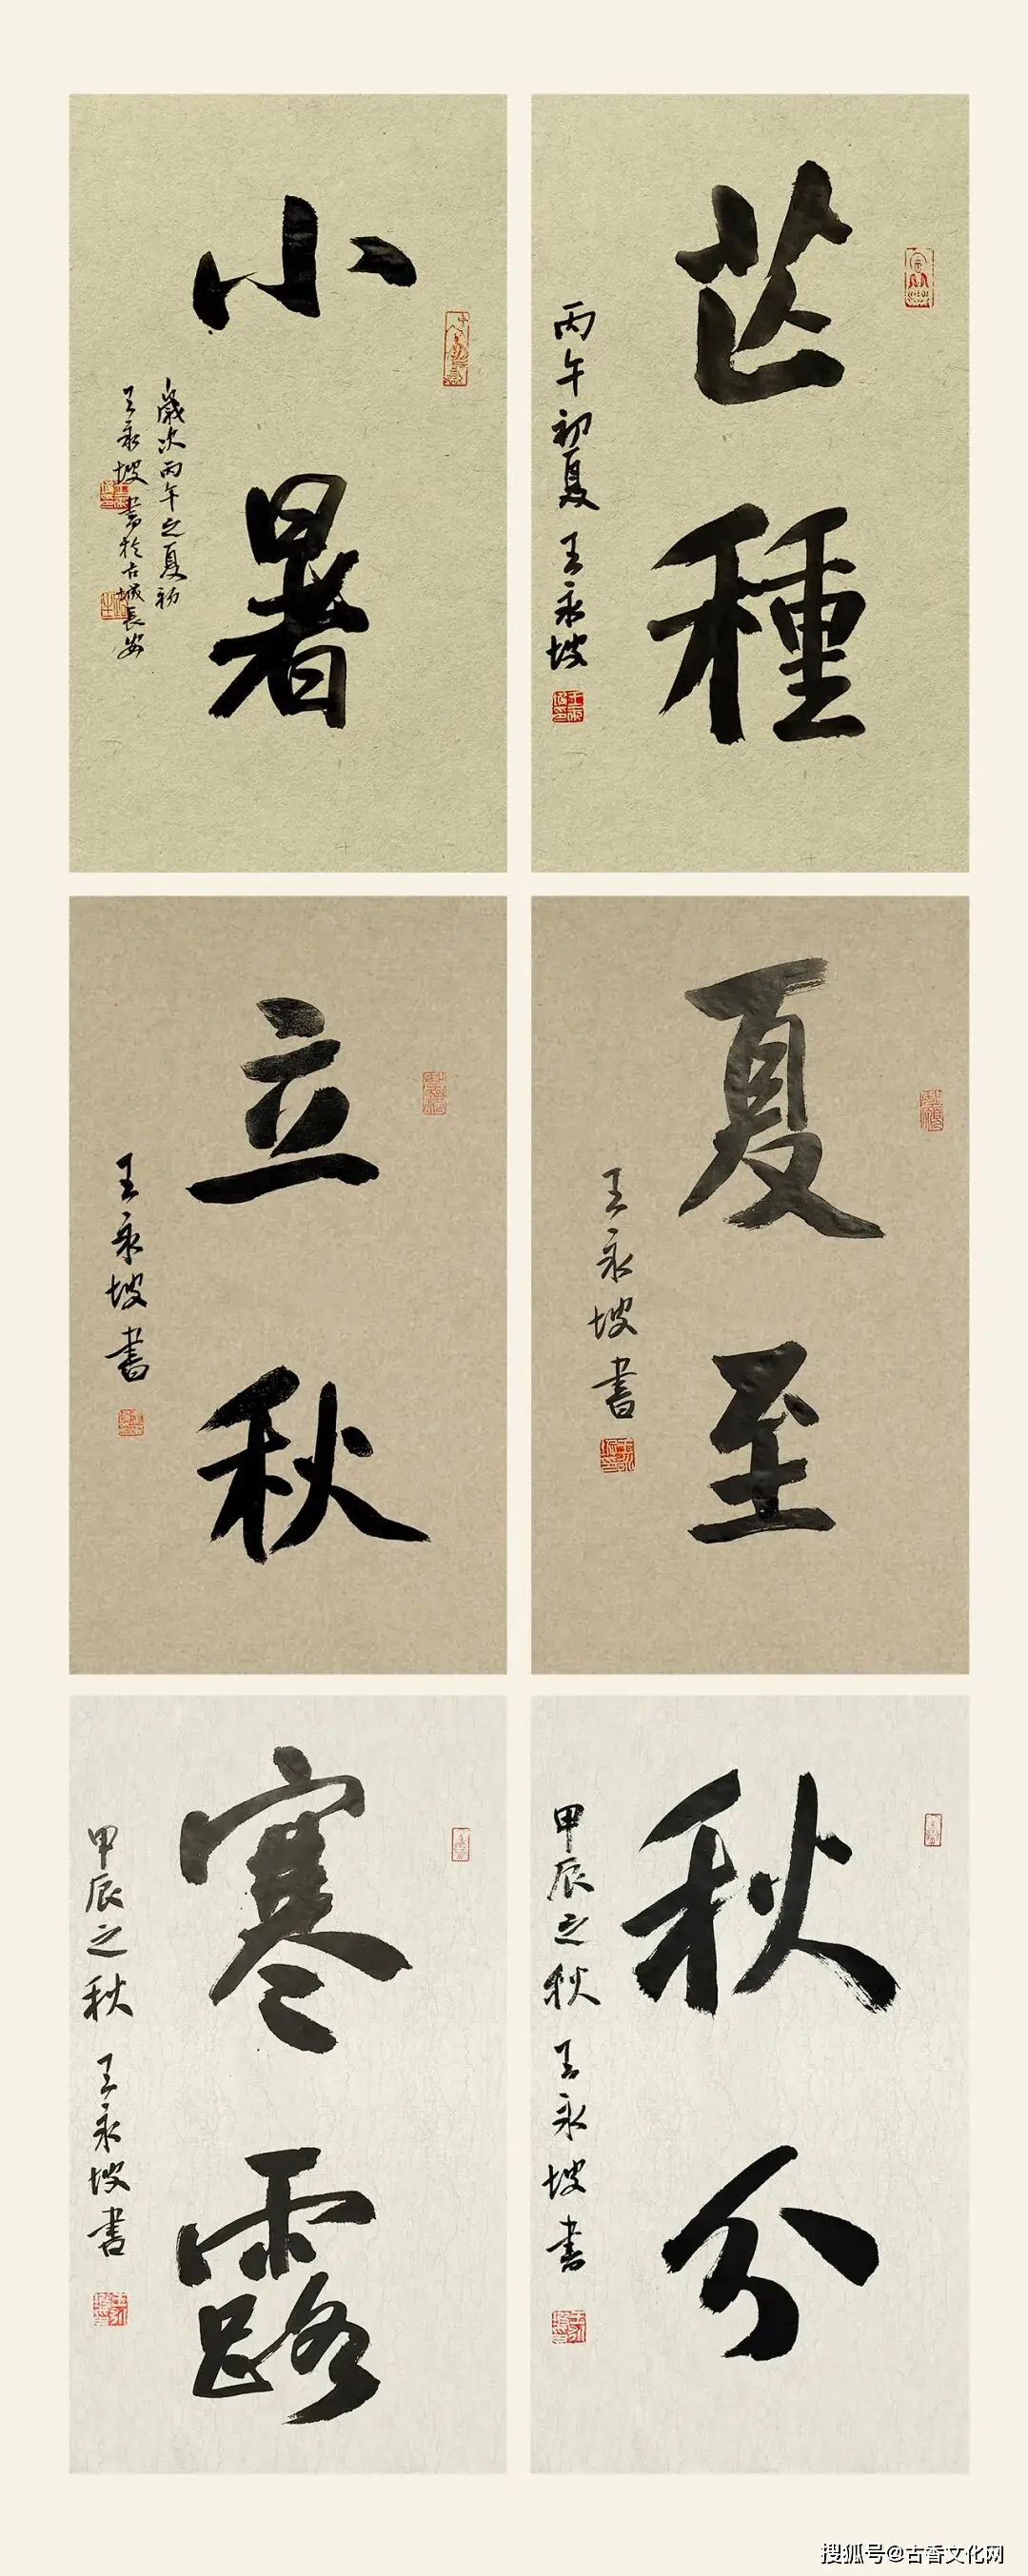 芒種
丙午初夏 王永坡
小暑
歲次丙午之夏初
王永坡書於古城長安
夏至
王永坡書
立秋
王永坡書
秋分
甲辰之秋 王永坡書
寒露
甲辰之秋 王永坡書
搜狐号@古香文化网